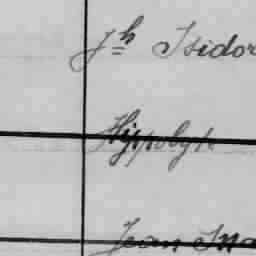 Jh Isidor
Hyppolyte
Jean Ma